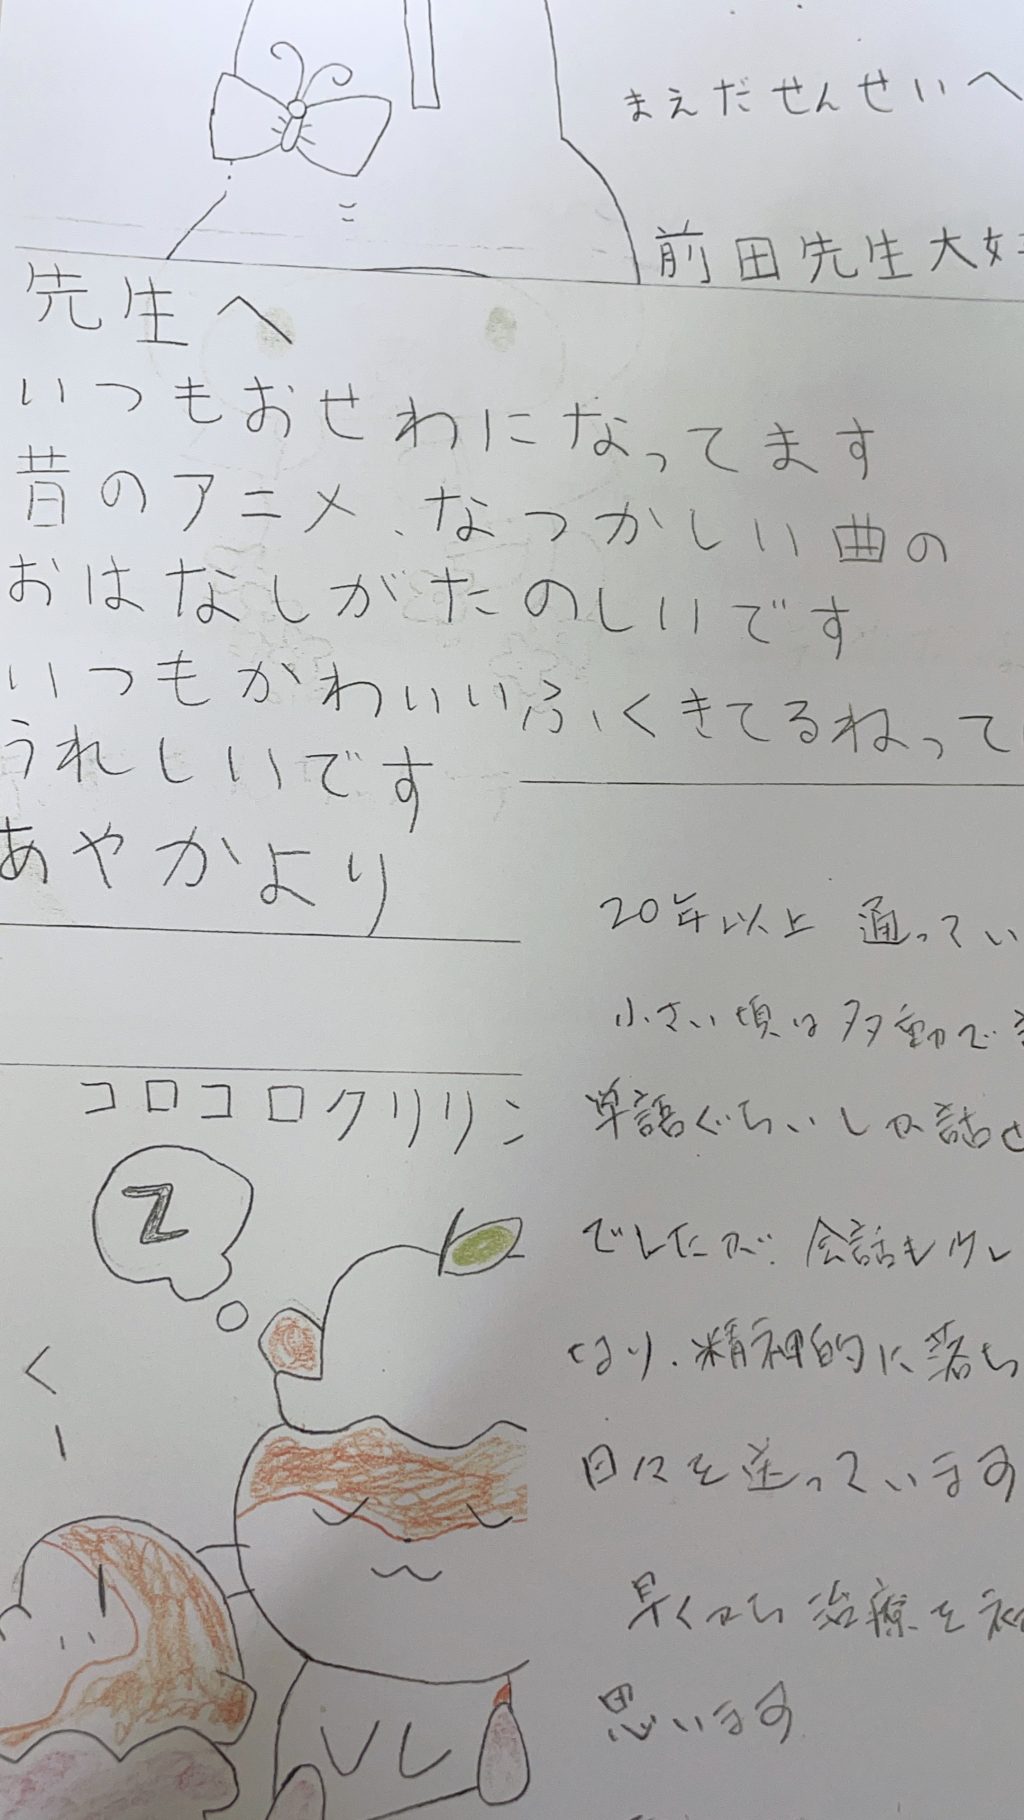 まえだせんせいへ
前田先生大好
先生へ
いつもおせわになってます
昔のアニメ、なつかしい曲の
おはなしがたのしいです
いつもかわいいふくきてるねって
うれしいです
あやかより
コロコロクリリン
Z
くー
20年以上 通ってい
小さい頃は多動で
単語ぐらいしか話せ
でしたが、会話も少し
なり、精神的に落ち
日々を送っています
早くから治療を
思います